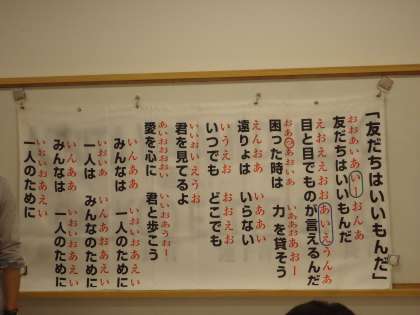 「友だちはいいもんだ」
おおあいあ いー おんあ
友だちはいいもんだ
えおええおおあ いえうんあ
目と目でものが言えるんだ
困った時は 力を貸そう
えんおあ いああい
遠りょは いらない
いうえお おおえお
いつでも どこでも
いいおいえうお
君を見てるよ
あいおおおおい いいおあうおー
愛を心に 君と歩こう
いんああ いおいおあえい
みんなは 一人のために
いおいあ いんああおあえい
一人は みんなのために
いんああ いおいおあえい
みんなは 一人のために
いおいおあえい
一人のために